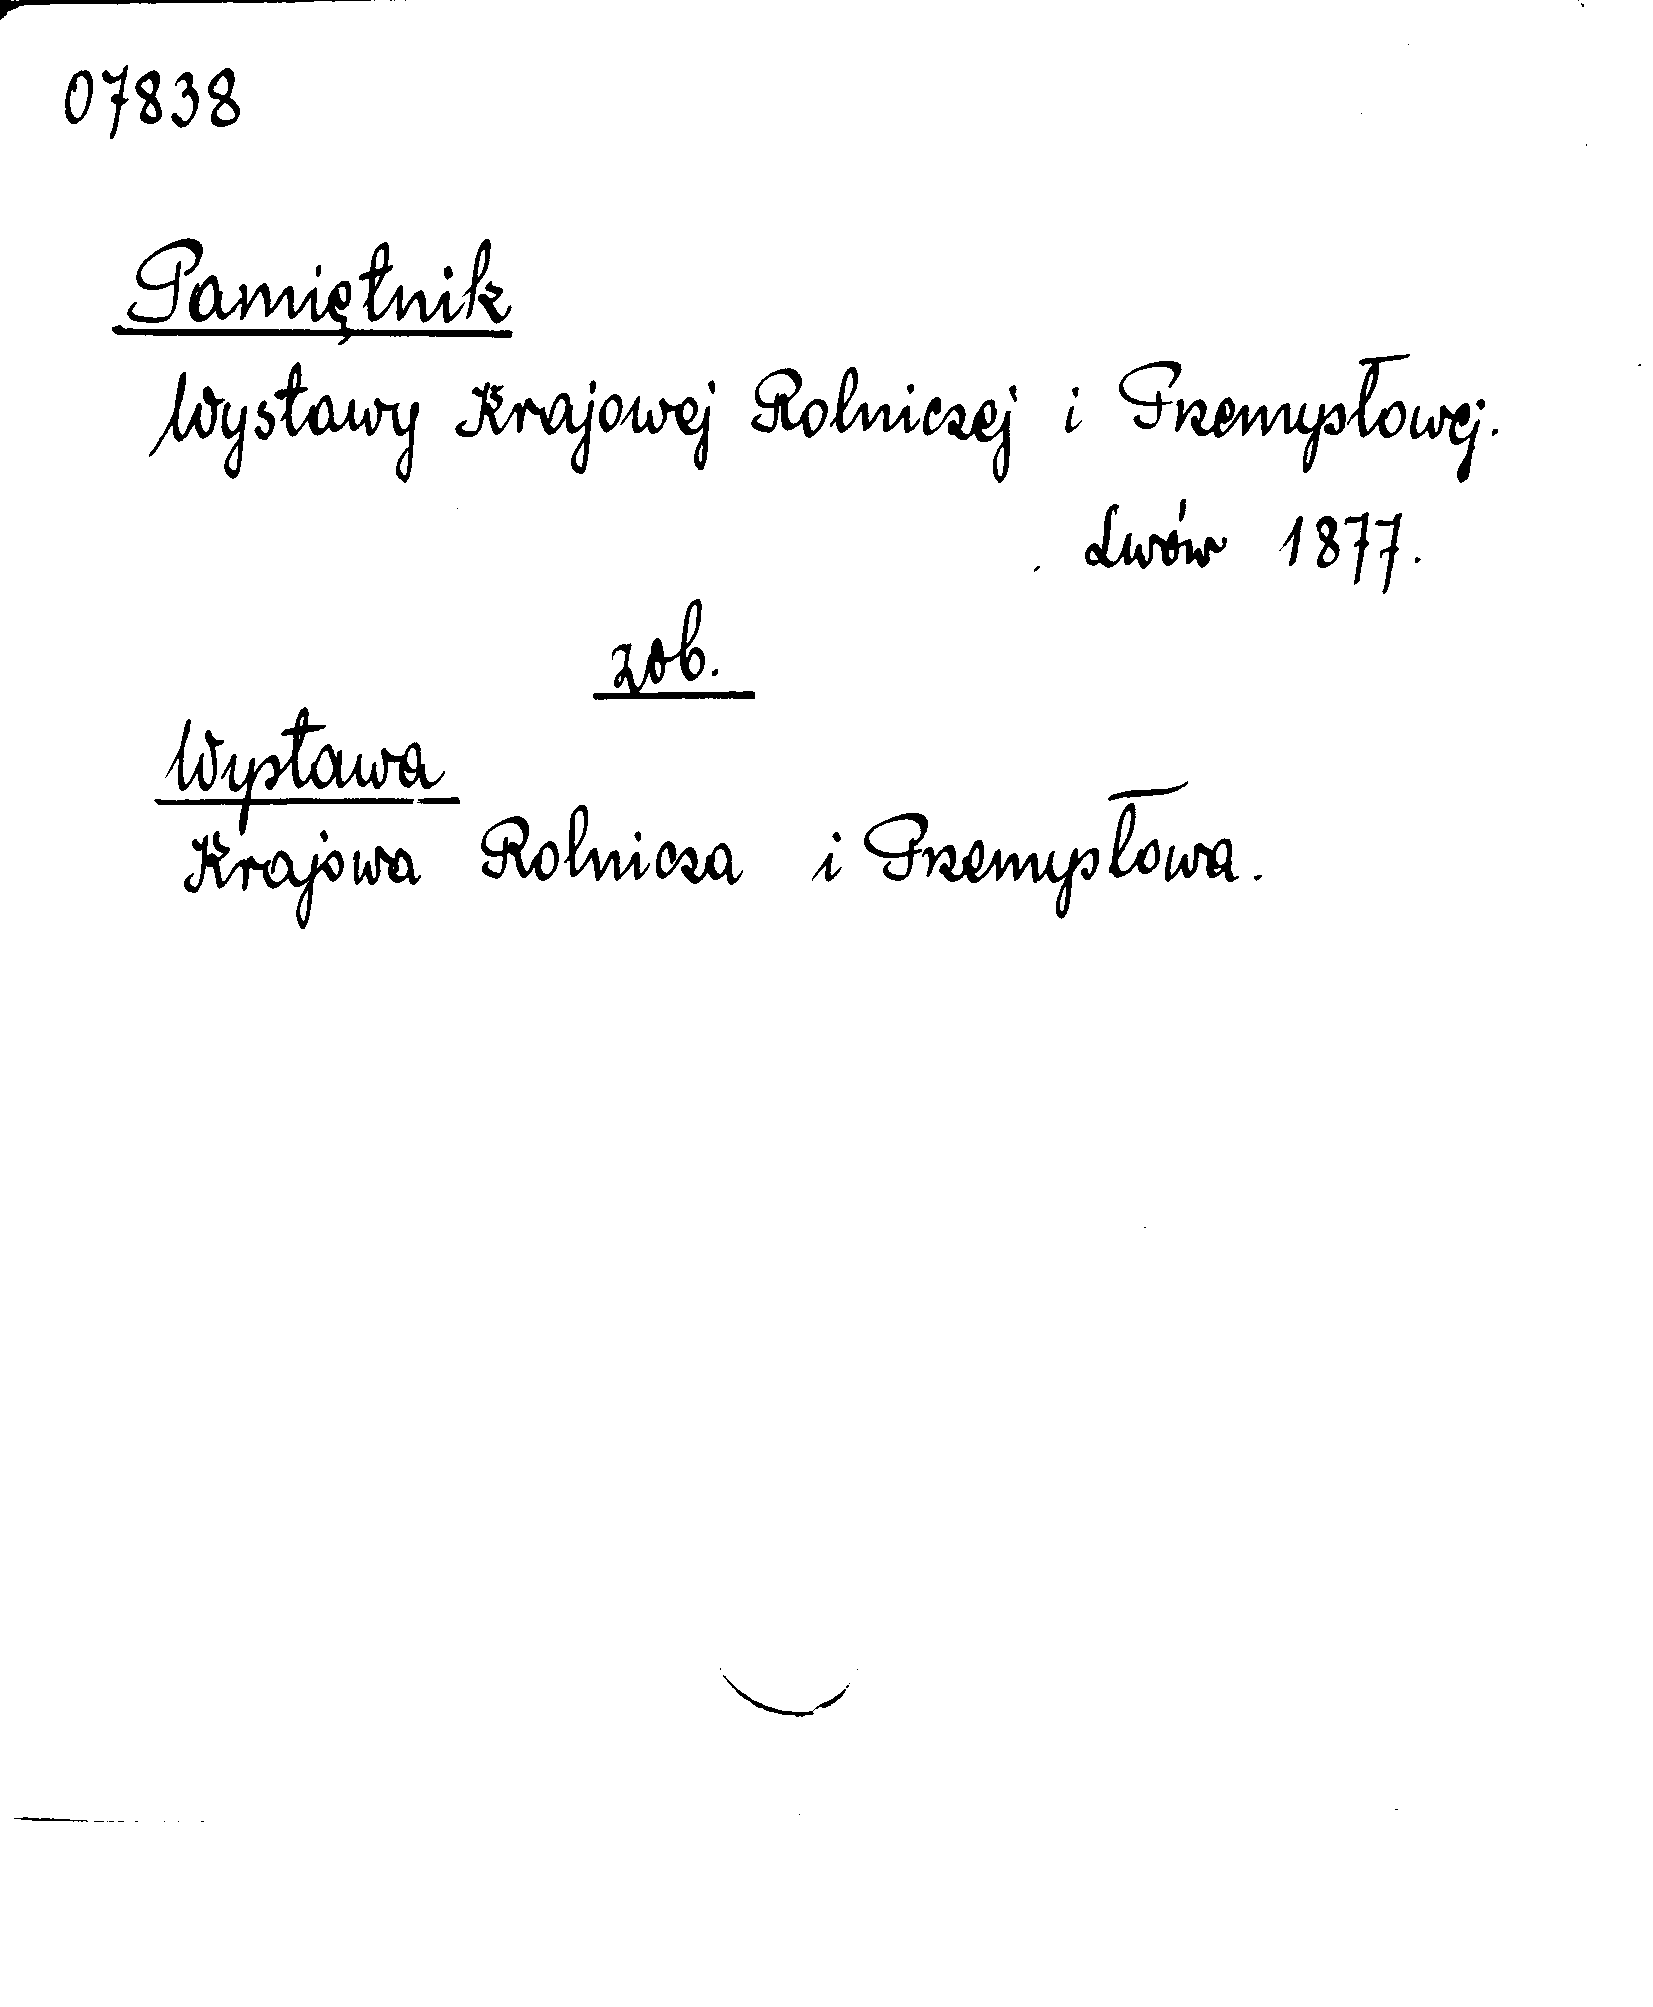 07838
Pamiętnik
Wystawy Krajowej Rolniczej i Przemysłowej.
Lwów 1877.
zob.
Wystawa
Krajowa Rolnicza i Przemysłowa.